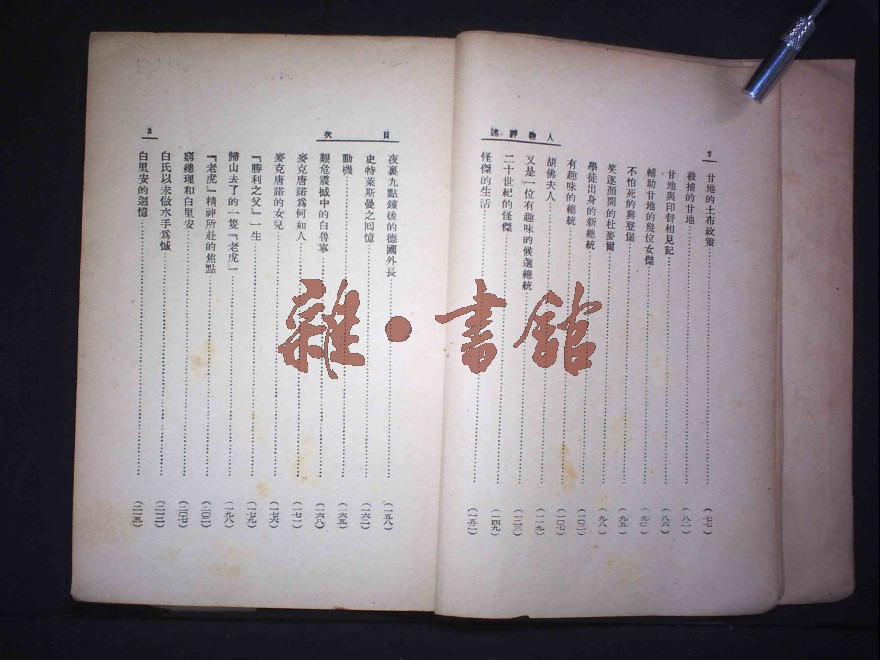 人物評述
2
甘地的土布政策(七七)
被捕的甘地(八一)
甘地與印督相見記(八六)
輔助甘地的幾位女傑(九〇)
不怕死的興登堡(九五)
笑逐顏開的杜麥爾(九八)
學徒出身的新總統(一〇二)
有趣味的總統(一〇七)
胡佛夫人(一一九)
又是一位有趣味的候選總統(一二三)
二十世紀的怪傑(一四九)
怪傑的生活(一五二)
目次
3
夜裏九點鐘後的德國外長(一五八)
史特萊斯曼之回憶(一六二)
動機(一六五)
艱危震撼中的白魯寧(一六八)
麥克唐諾爲何如人(一七二)
麥克唐諾的女兒(一七六)
『勝利之父』一生(一七九)
歸山去了的一隻『老虎』(一九八)
『老虎』精神所赴的焦點(二〇二)
窮總理和白里安(二〇七)
白氏以未做水手爲憾(二一二)
白里安的迴憶(二一五)
雜·書館